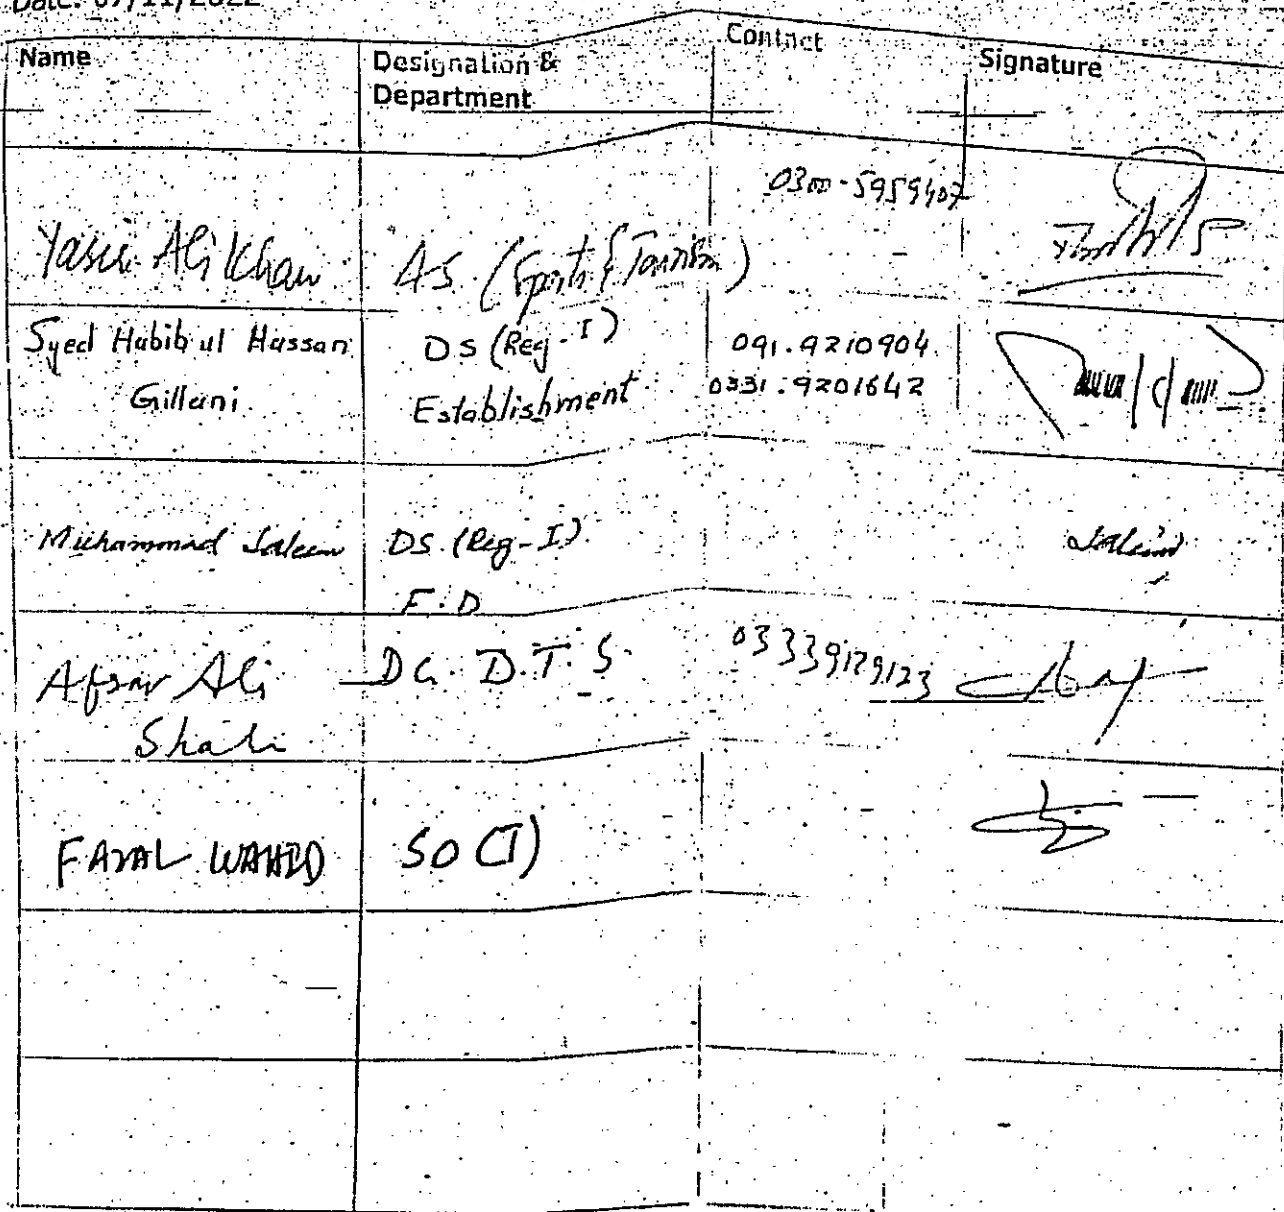 Date: 07/11/2022
Name Designation & Department Contact Signature
Yasir Ali Khan AS (Sports & Tourism) 0300-5959407
Syed Habib ul Hassan Gillani DS (Reg-I) Establishment 091.9210904 0331.9201642
Muhammad Saleem DS (Reg-I) F.D Saleem
Afsar Ali Shah DG. D.T.S. 03339129123
FAZAL WAHID SO (T)